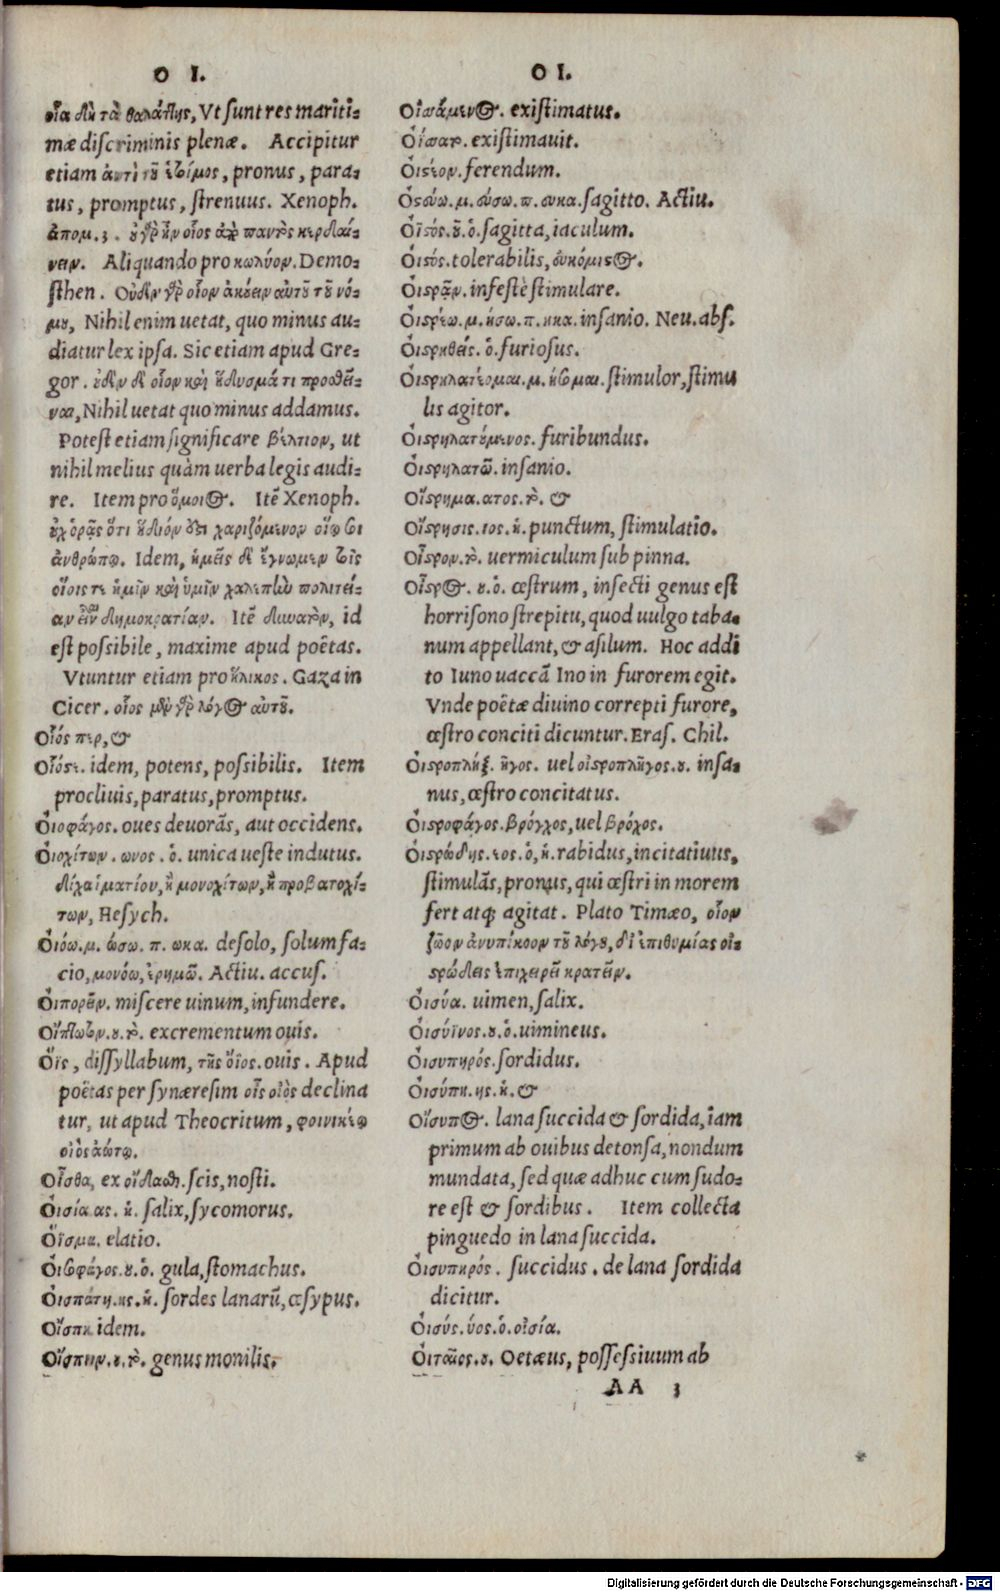 O I.
οἷα δὴ τὰ θαλάττης, Vt sunt res mariti=
mæ discriminis plenæ. Accipitur
etiam ἀντὶ τοῦ ἑτοίμος, pronus, para=
tus, promptus, strenuus. Xenoph.
ἀπομ. 3. οὐ γὰρ ἦν οἷος ἀπὸ παντὸς κερδαί=
νειν. Aliquando pro κωλύον. Demo=
sthen. Οὐδὲν γὰρ οἷον ἀκούειν αὐτοῦ τοῦ νό=
μου, Nihil enim uetat, quo minus au=
diatur lex ipsa. Sic etiam apud Gre=
gor. οὐδὲν δὲ οἷον καὶ ἥδυσμά τι προσθεῖ=
ναι, Nihil uetat quo minus addamus.
Potest etiam significare βέλτιον, ut
nihil melius quàm uerba legis audi=
re. Item pro ὅμοιος. Itē Xenoph.
ἐχ ὁρᾷς ὅτι ἥδιόν ἐστι χαριζόμενον οἵῳ σοι
ἀνθρώπῳ. Idem, ἡμεῖς δὲ ἔγνωμεν τοῖς
οἵοις τε ἡμῖν καὶ ὑμῖν χαλεπὴν πολιτεί=
αν εἶναι δημοκρατίαν. Itē δυνατὸν, id
est possibile, maxime apud poëtas.
Vtuntur etiam pro ἥλικος. Gaza in
Cicer. οἷος μὲν γὰρ λόγος αὐτοῦ.
Οἷός περ, &
Οἷόστε. idem, potens, possibilis. Item
procliuis, paratus, promptus.
Ὀιοφάγος. oues deuorās, aut occidens.
Ὀιοχίτων. ωνος. ὁ. unica ueste indutus.
δίχα ἱματίου, ἢ μονοχίτων, ἢ προβατοχί=
των, Hesych.
Ὀιόω. μ. ώσω. π. ωκα. desolo, solum fa=
cio, μονόω, ἐρημῶ. Actiu. accus.
Ὀιπορεῖν. miscere uinum, infundere.
Οἴπωτον. ου. τὸ. excrementum ouis.
Ὄϊς, dissyllabum, τῆς ὄϊος. ouis. Apud
poëtas per synæresim οἶς οἰὸς declina
tur, ut apud Theocritum, φοινικέῳ
οἰὸς ἀώτῳ.
Οἶσθα, ex οἴδασθα. scis, nosti.
Ὀισία. ας. ἡ. salix, sycomorus.
Οἴσμα. elatio.
Ὀισοφάγος. ου. ὁ. gula, stomachus.
Ὀισπάτη. ης. ἡ. sordes lanarū, œsypus.
Οἴσπη. idem.
Οἴσπην. ου. τὸ. genus monilis.
O I.
Οἰσάμενος. existimatus.
Οἴσατο. existimauit.
Ὀιστέον. ferendum.
Ὀϊστεύω. μ. εύσω. π. ευκα. sagitto. Actiu.
Ὀϊστός. οῦ. ὁ. sagitta, iaculum.
Ὀιστός. tolerabilis, εὐκόμιστος.
Ὀιστρᾶν. infestè stimulare.
Ὀιστρέω. μ. ήσω. π. ηκα. insanio. Neu. abs.
Ὀιστρηθείς. ὁ. furiosus.
Ὀιστρηλατέομαι. μ. ήσομαι. stimulor, stimu
lis agitor.
Ὀιστρηλατούμενος. furibundus.
Ὀιστρηλατῶ. insanio.
Οἴστρημα. ατος. τὸ. &
Οἴστρησις. εος. ἡ. punctum, stimulatio.
Οἶστρον. τὸ. uermiculum sub pinna.
Οἶστρος. ου. ὁ. œstrum, insecti genus est
horrisono strepitu, quod uulgo taba=
num appellant, & asilum. Hoc addi
to Iuno uaccā Ino in furorem egit.
Vnde poëtæ diuino correpti furore,
œstro conciti dicuntur. Eras. Chil.
Ὀιστροπλήξ. ῆγος. uel οἰστροπλῆγος. ου. insa=
nus, œstro concitatus.
Ὀιστροφάγος. βρόγχος, uel βρόχος.
Ὀιστρώδης. εος. ὁ, ἡ. rabidus, incitatiuus,
stimulās, pronus, qui œstri in morem
fert atq; agitat. Plato Timæo, οἷον
ζῶον ἀνυπήκοον τοῦ λόγου, δι' ἐπιθυμίας οἰ=
στρώδεις ἐπιχειρεῖ κρατεῖν.
Ὀισύα. uimen, salix.
Ὀισύϊνος. ου. ὁ. uimineus.
Ὀισυπηρός. sordidus.
Ὀισύπη. ης. ἡ. &
Οἴσυπος. lana succida & sordida, iam
primum ab ouibus detonsa, nondum
mundata, sed quæ adhuc cum sudo=
re est & sordibus. Item collecta
pinguedo in lana succida.
Ὀισυπηρός. succidus. de lana sordida
dicitur.
Ὀισύς. ύος. ὁ. οἰσία.
Ὀιταῖος. ου. Oetæus, possessiuum ab
AA 3
Digitalisierung gefördert durch die Deutsche Forschungsgemeinschaft - DFG